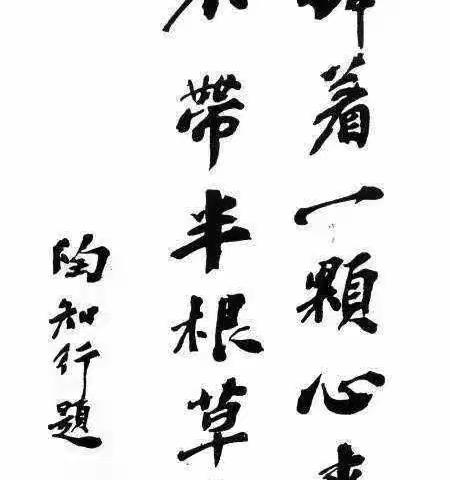 着一顆心
帶半根草
陶知行題